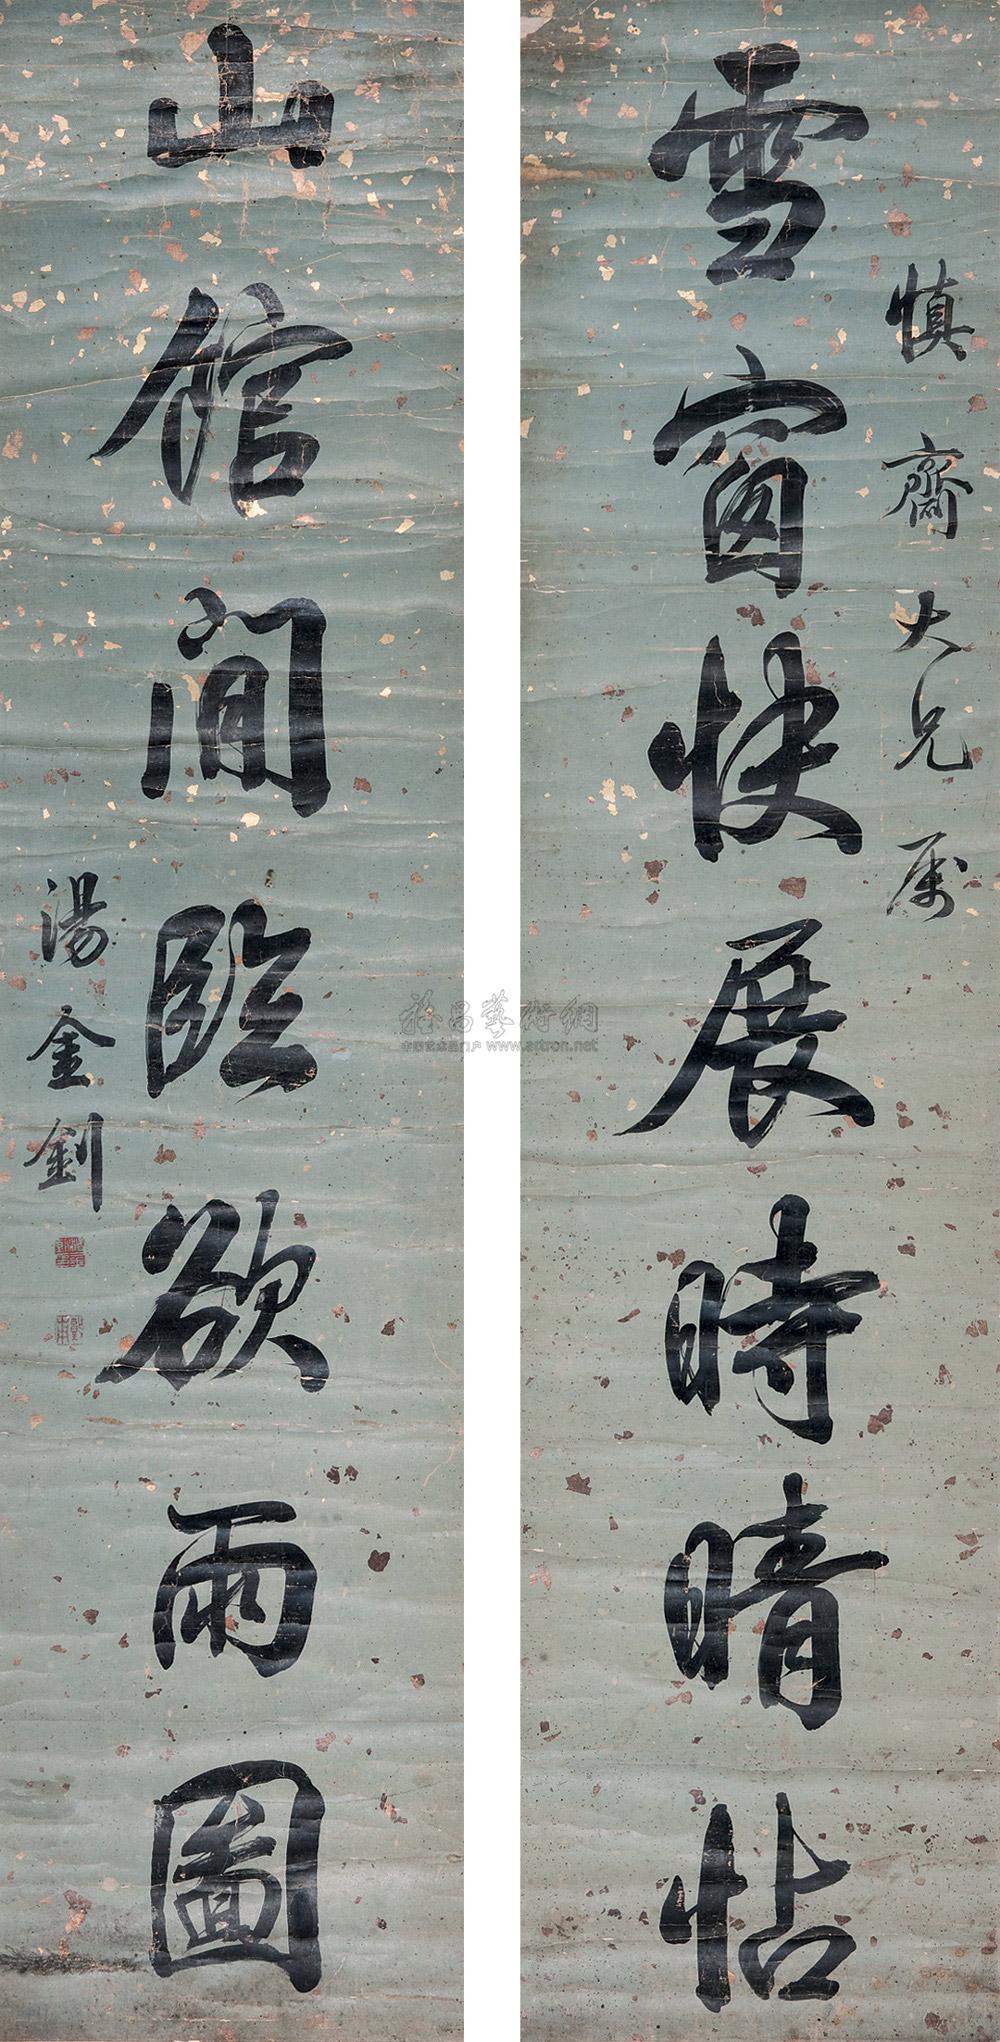 慎齋大兄属
雪窗快展時晴帖
山館閒臨欲雨圖
湯金釗
雅昌藝術網
中国艺术品门户 www.artron.net